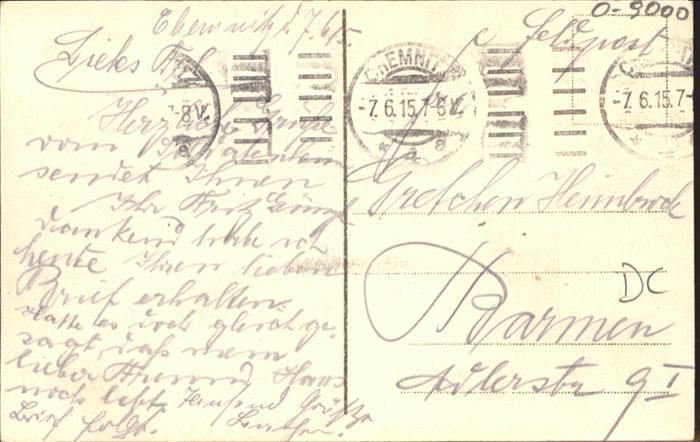 0-9000
Chemnitz d. 7.6.15.
Liebes Frl.
Herzliche Grüße
vom
sendet Ihnen
Ihr Fritz
dankend habe ich
heute Ihren lieben
Brief erhalten.
Hatte es doch gleich ge-
sagt, daß mein
lieber Freund Hans
noch lebt. Tausend Grüße
Brief folgt.
Feldpost
CHEMNITZ
-7.6.15.7-8V.
* a a
CHEMNITZ
-7.6.15.7-
7-8V.
Gretchen Heimbrock
Barmen
DC
Adlerstr 9 I